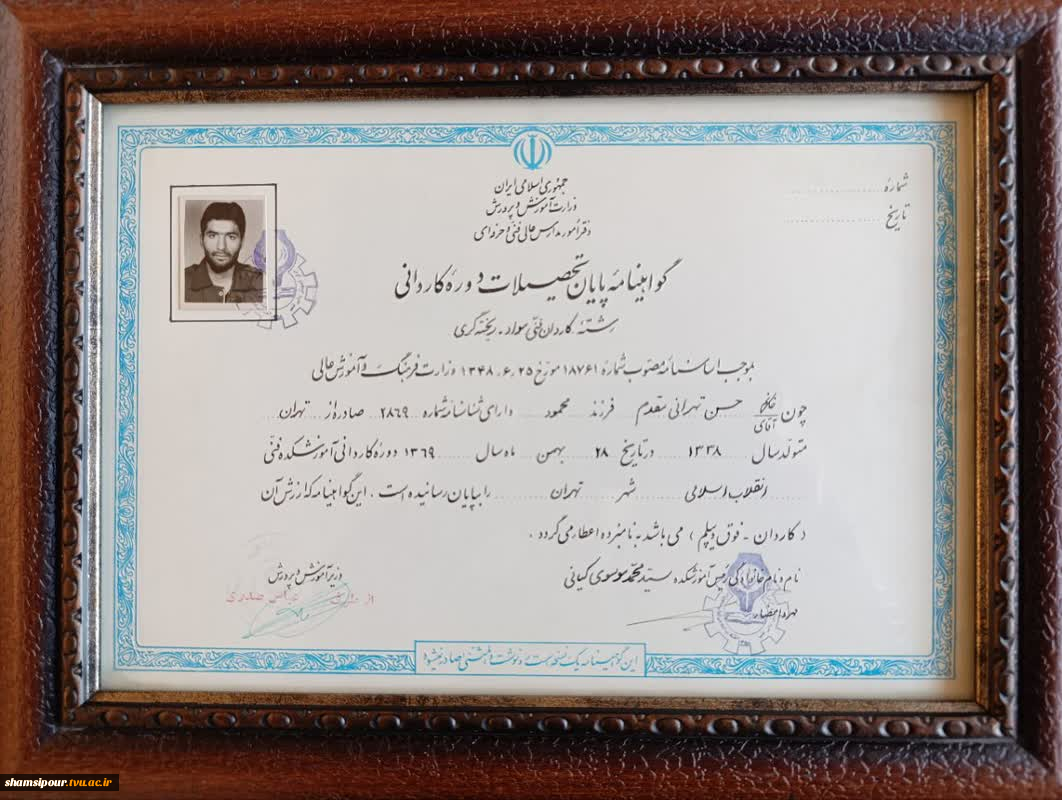 جمهوری اسلامی ایران
وزارت آموزش و پرورش
دفتر امور مدارس عالی فنی و حرفه‌ای
شمارهٔ
تاریخ
گواهینامهٔ پایان تحصیلات دورهٔ کاردانی
رشتهٔ کاردان فنی مواد - ریخته گری
بموجب اساسنامه مصوب شمارهٔ ۱۸۷۶۱ مورّخ ۲۵ر۶ر۱۳۴۸ وزارت فرهنگ و آموزش عالی
چون خانم آقای حسن تهرانی مقدم فرزند محمود دارای شناسنامه شماره ۲۸۶۹ صادره از تهران
متولّد سال ۱۳۳۸ در تاریخ ۲۸ بهمن ماه سال ۱۳۶۹ دورهٔ کاردانی آموزشکده فنّی
انقلاب اسلامی شهر تهران را بپایان رسانیده است . این گواهینامه که ارزش آن
( کاردان - فوق دیپلم ) می باشد به نامبرده اعطا می گردد .
نام و نام خانوادگی رئیس آموزشکده سیّد محمّد موسوی کیانی
مهر و امضاء
وزیر آموزش و پرورش
از طرف عباس صدری
این گواهینامه یک نسخه است و رونوشت یا المثنی صادر نمیشود
shamsipour.tvu.ac.ir